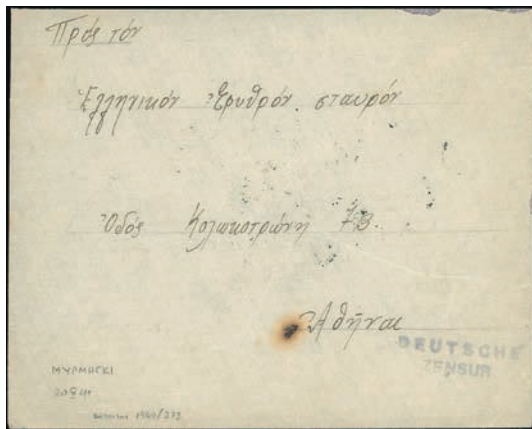 Πρός τόν
Ἑλληνικόν Ἐρυθρόν σταυρόν
Ὁδός Κολωκοτρώνη 7B.
Ἀθῆναι
DEUTSCHE
ZENSUR
ΜΥΡΜΗGΚΙ
1940/272